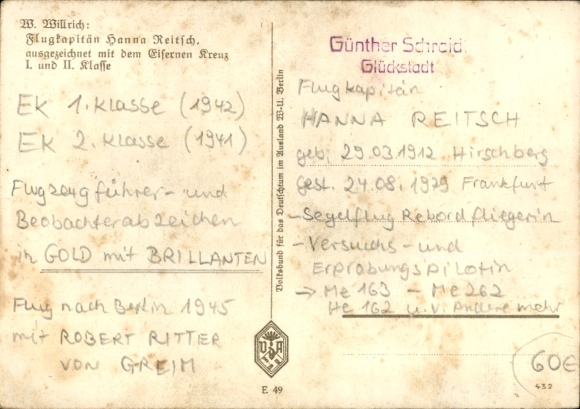 W. Willrich:
Flugkapitän Hanna Reitsch,
ausgezeichnet mit dem Eisernen Kreuz
I. und II. Klasse
EK 1. Klasse (1942)
EK 2. Klasse (1941)
Flugzeugführer- und
Beobachterabzeichen
in GOLD mit BRILLANTEN
Flug nach Berlin 1945
mit ROBERT RITTER
VON GREIM
Volksbund für das Deutschtum im Ausland W-U. Berlin
VDA
E 49
Günther Schreid
Glückstadt
Flugkapitän
HANNA REITSCH
geb. 29.03.1912 Hirschberg
gest. 24.08.1979 Frankfurt
- Segelflug Rekordfliegerin
- Versuchs- und
Erprobungspilotin
→ Me 163 - Me 262
He 162 u.v. Andere mehr
60€
432